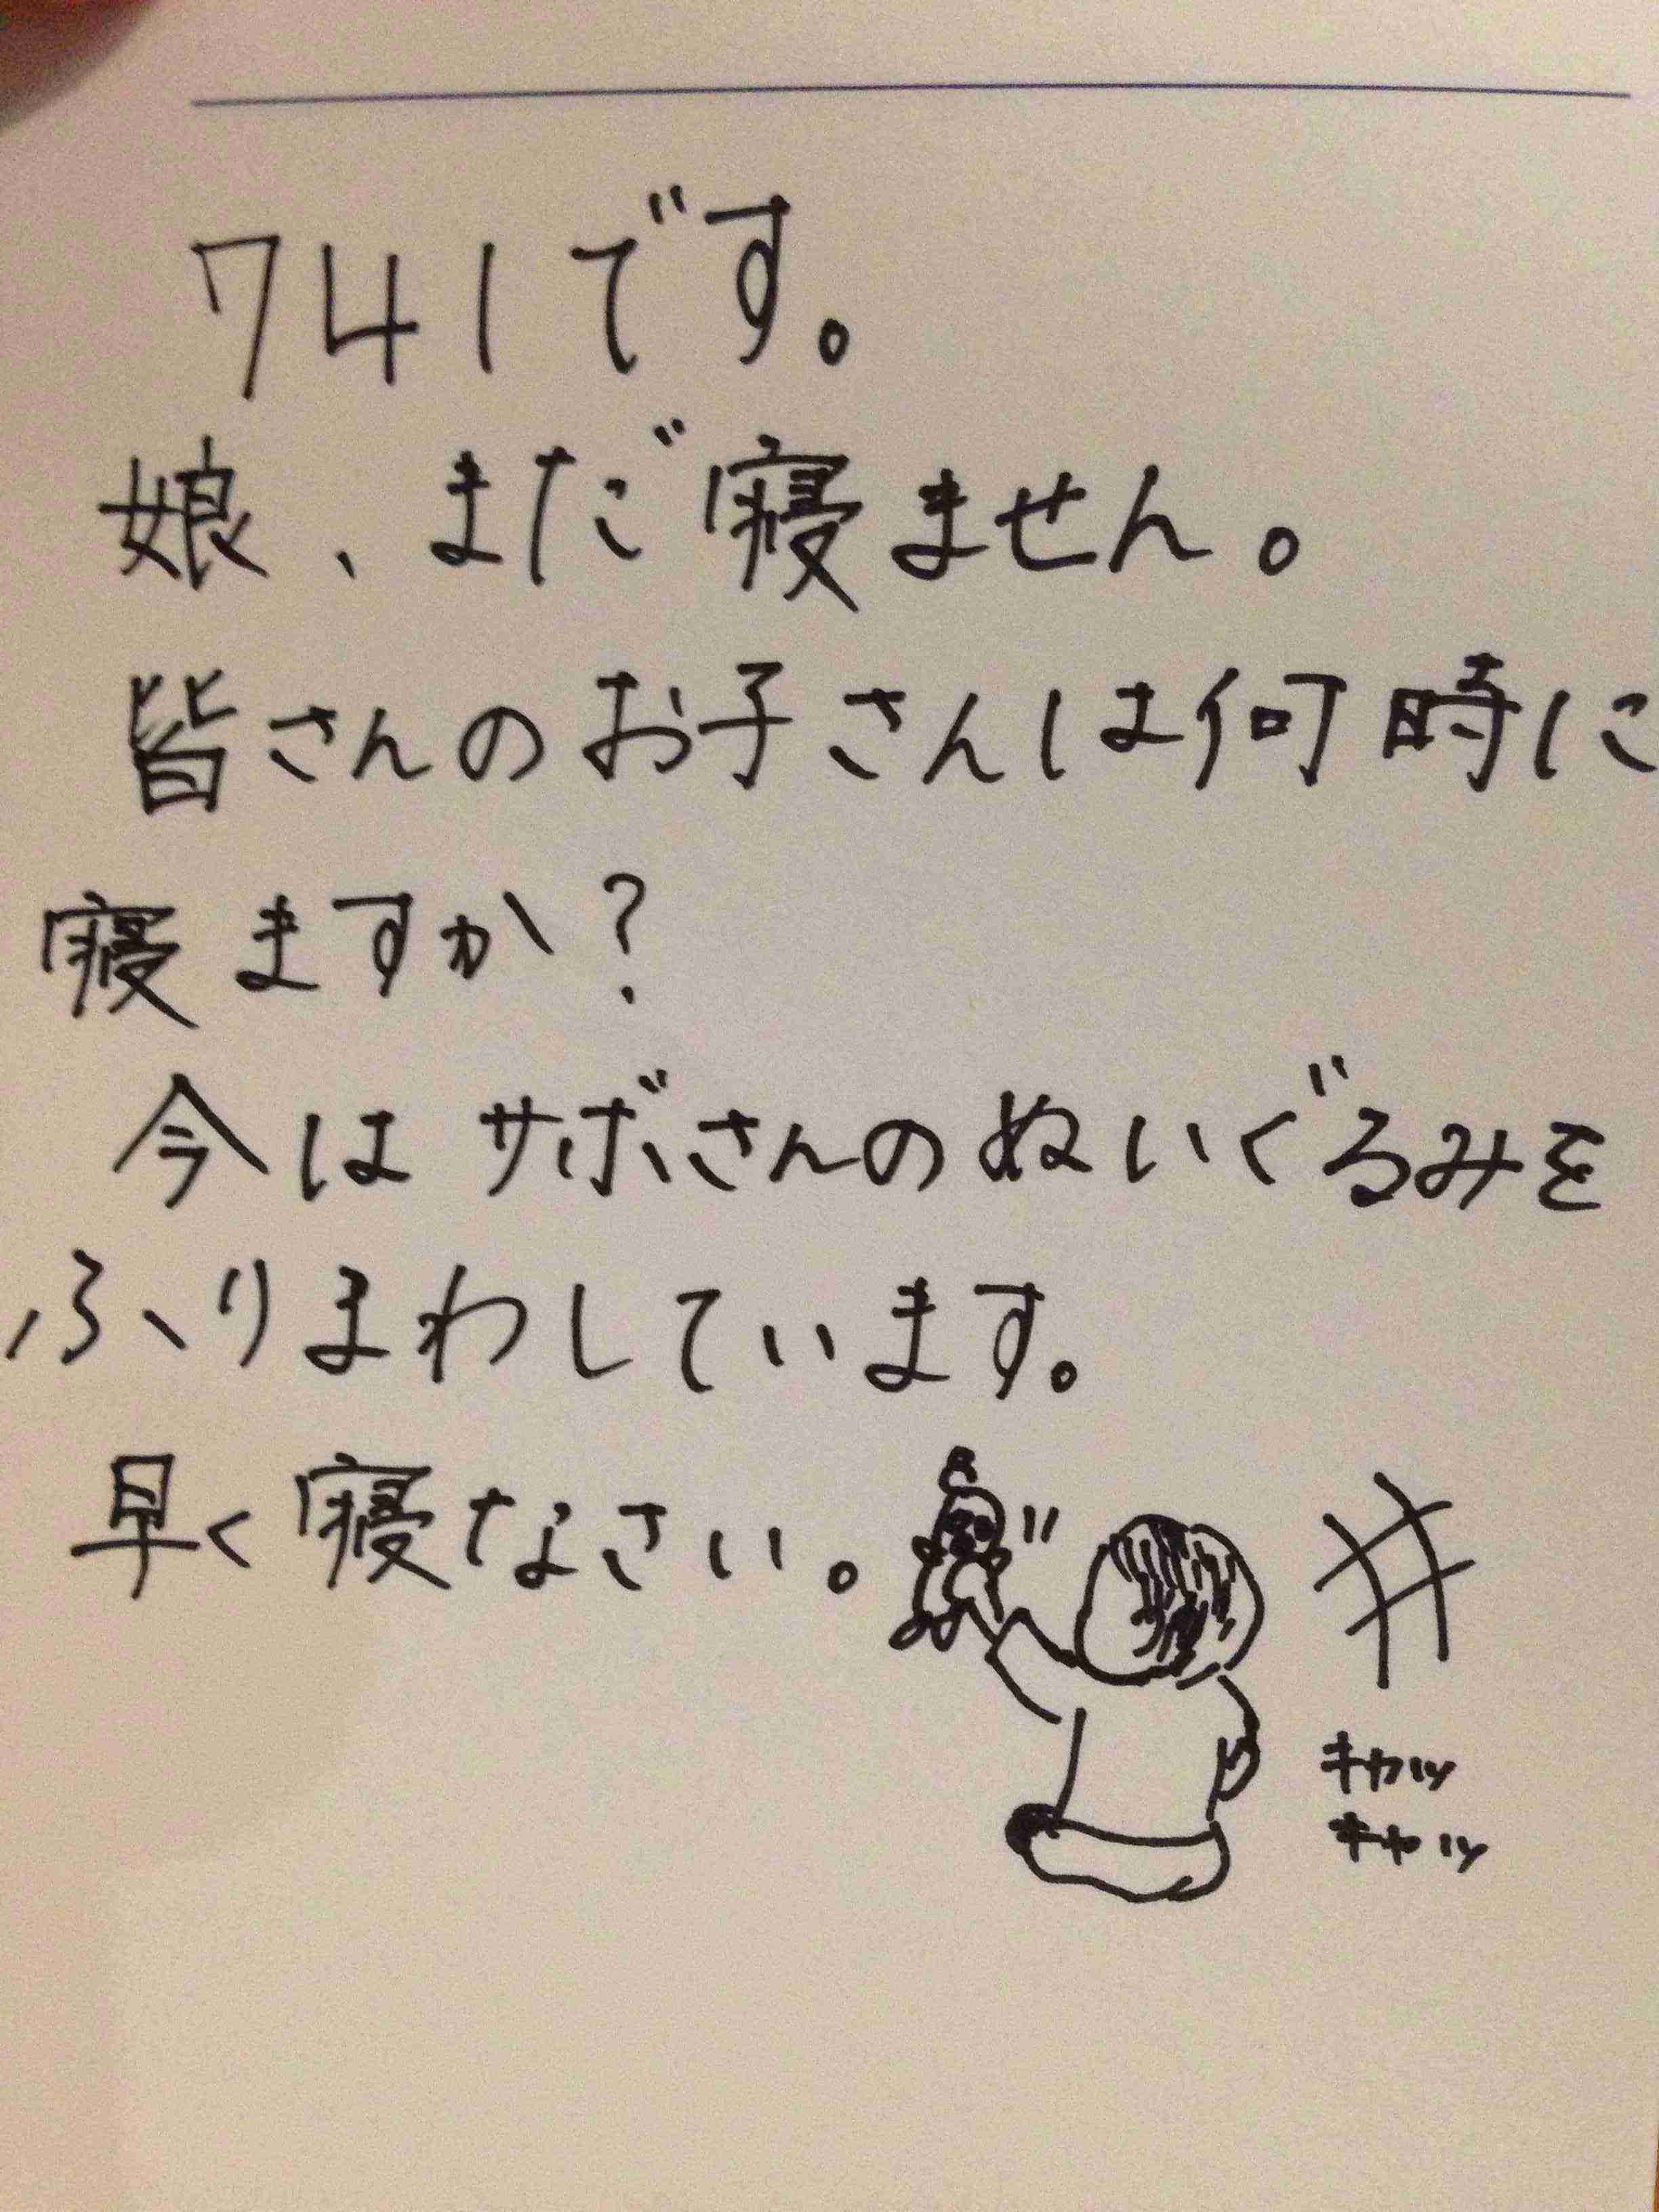 741です。
娘、まだ寝ません。
皆さんのお子さんは何時に
寝ますか?
今はサボさんのぬいぐるみを
ふりまわしています。
早く寝なさい。
キャッ
キャッ